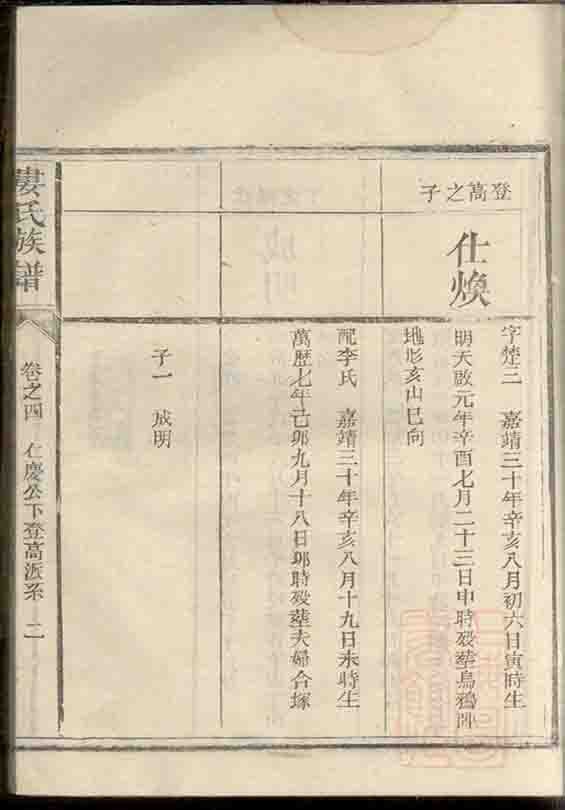 登高之子
仕煥
字楚三 嘉靖三十年辛亥八月初六日寅時生
明天啟元年辛酉七月二十三日申時殁塟烏鴉
地形亥山巳向
配李氏 嘉靖三十年辛亥八月十九日未時生
萬歷七年己卯九月十八日卯時殁塟夫婦合塚
子一 成明
婁氏族譜
卷之四 仁慶公下登高派系 二